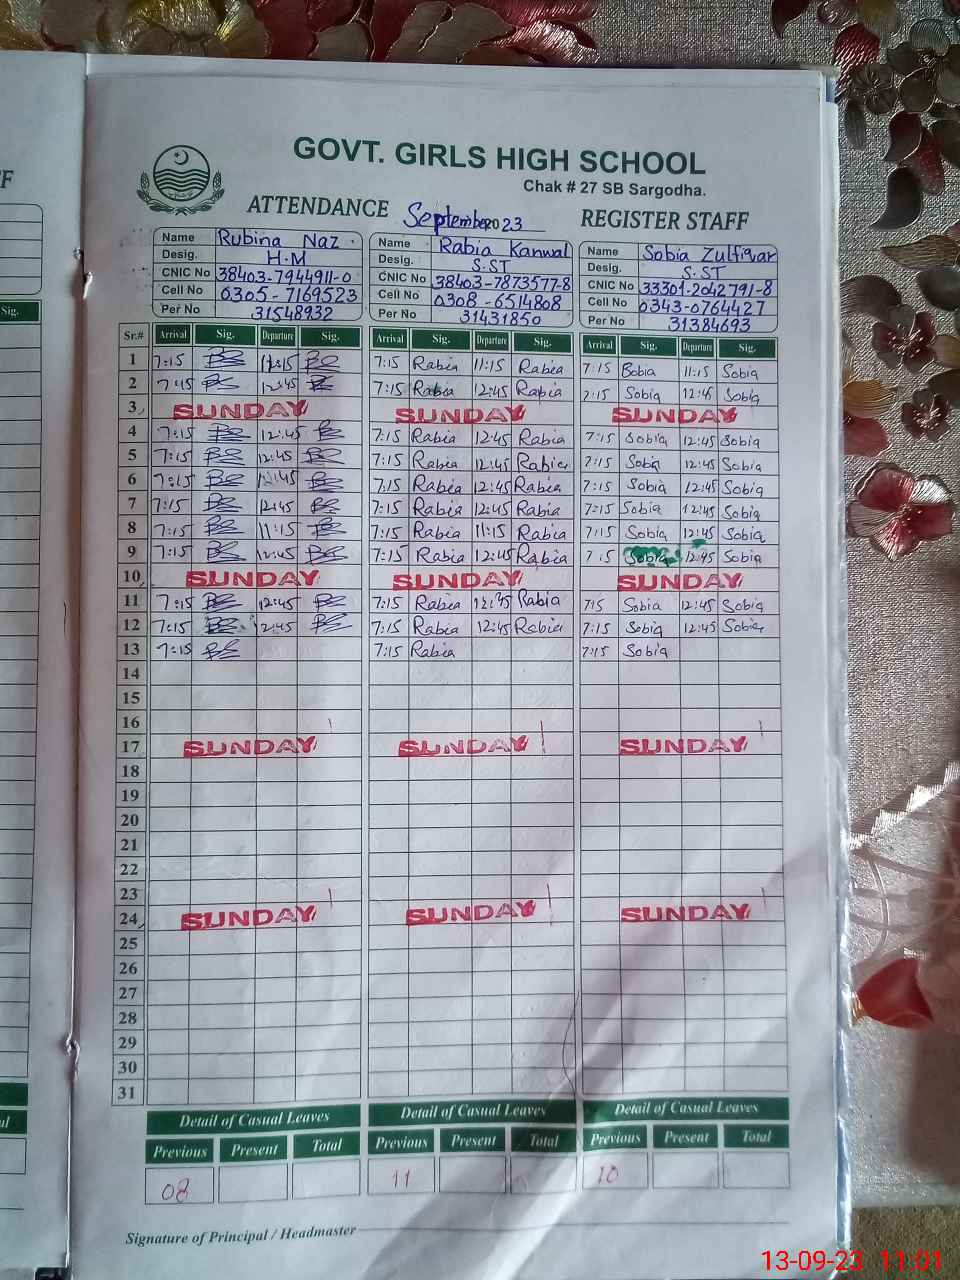 F
GOVT. GIRLS HIGH SCHOOL
Chak # 27 SB Sargodha.
ATTENDANCE September 2023 REGISTER STAFF
Name Rubina Naz. Name Rabia Kanwal Name Sobia Zulfiqar
Desig. H.M Desig. S.ST Desig. S.ST
CNIC No 38403-7944911-0 CNIC No 38403-7873577-8 CNIC No 33301-2042791-8
Cell No 0305-7169523 Cell No 0308-6514808 Cell No 0343-0764427
Per No 31548932 Per No 31431850 Per No 31384693
Sig.
Sr.# Arrival Sig. Departure Sig. Arrival Sig. Departure Sig. Arrival Sig. Departure Sig.
1 7:15 11:15 7:15 Rabia 11:15 Rabia 7:15 Sobia 11:15 Sobia
2 7:15 12:45 7:15 Rabia 12:45 Rabia 7:15 Sobia 12:45 Sobia
3 SUNDAY SUNDAY SUNDAY
4 7:15 12:45 7:15 Rabia 12:45 Rabia 7:15 Sobia 12:45 Sobia
5 7:15 12:45 7:15 Rabia 12:45 Rabia 7:15 Sobia 12:45 Sobia
6 7:15 12:45 7:15 Rabia 12:45 Rabia 7:15 Sobia 12:45 Sobia
7 7:15 12:45 7:15 Rabia 12:45 Rabia 7:15 Sobia 12:45 Sobia
8 7:15 11:15 7:15 Rabia 11:15 Rabia 7:15 Sobia 12:45 Sobia
9 7:15 12:45 7:15 Rabia 12:45 Rabia 7:15 Sobia 12:45 Sobia
10 SUNDAY SUNDAY SUNDAY
11 7:15 12:45 7:15 Rabia 12:45 Rabia 7:15 Sobia 12:45 Sobia
12 7:15 12:45 7:15 Rabia 12:45 Rabia 7:15 Sobia 12:45 Sobia
13 7:15 7:15 Rabia 7:15 Sobia
14
15
16
17 SUNDAY SUNDAY SUNDAY
18
19
20
21
22
23
24 SUNDAY SUNDAY SUNDAY
25
26
27
28
29
30
31
Detail of Casual Leaves Detail of Casual Leaves Detail of Casual Leaves
Previous Present Total Previous Present Total Previous Present Total
08 11 10
Signature of Principal / Headmaster
13-09-23 11:01